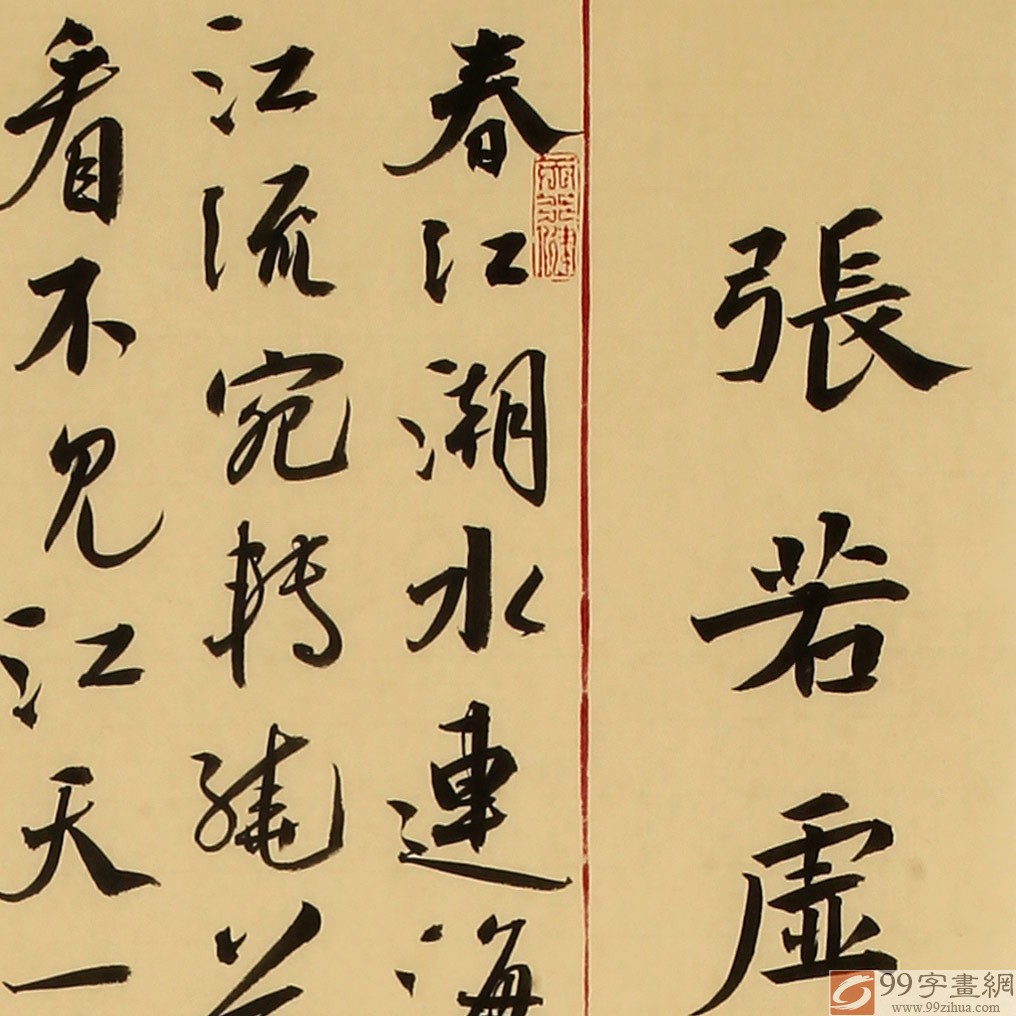 張若虛
春江潮水連海
江流宛轉繞芳
看不見江天一
99字畫網
www.99zihua.com